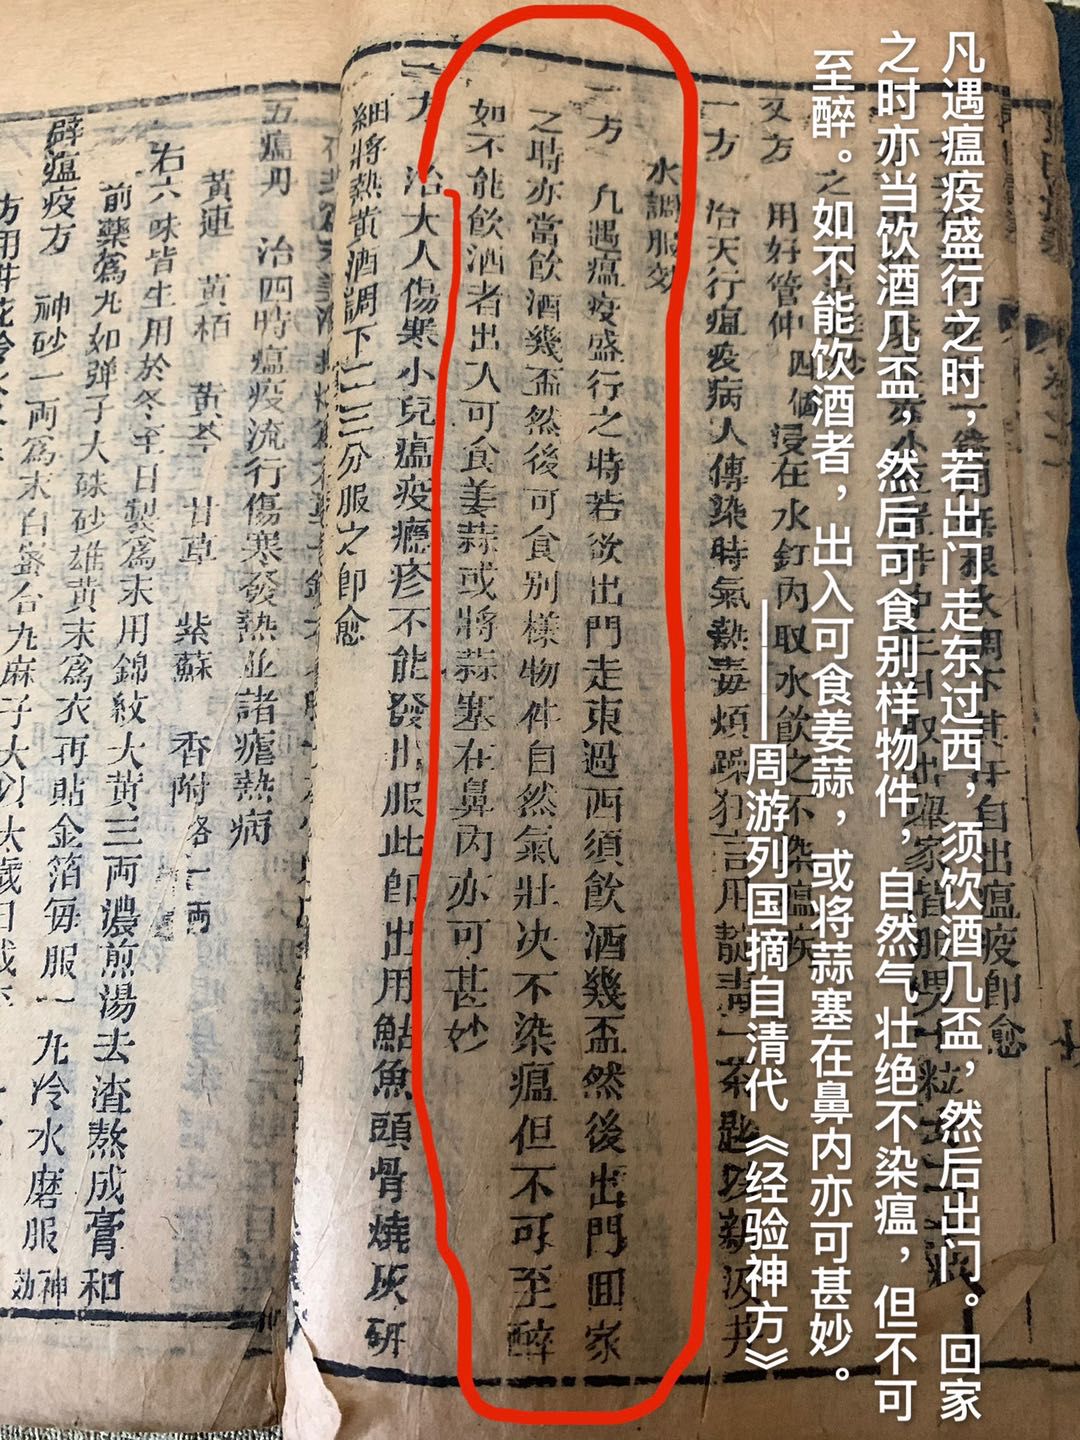 凡遇瘟疫盛行之时，若出门走东过西，须饮酒几盃，然后出门。回家
之时亦当饮酒几盃，然后可食别样物件，自然气壮绝不染瘟，但不可
至醉。之如不能饮酒者，出入可食姜蒜，或将蒜塞在鼻内亦可甚妙。
————周游列国摘自清代《经验神方》
自出瘟疫即愈
又方 用好管仲四個浸在水缸內取水飲之不染瘟疾
一方 治天行瘟疫病人傳染時氣熱毒煩躁狂言用靛青一茶匙以新汲井
水調服効
一方 凢遇瘟疫盛行之時若欲出門走東過西須飲酒幾盃然後出門回家
之時亦當飲酒幾盃然後可食别樣物件自然氣壯决不染瘟但不可至醉
如不能飲酒者出入可食姜蒜或將蒜塞在鼻內亦可甚妙
一方 治大人傷寒小兒瘟疫癮疹不能發出服此即出用鮎魚頭骨燒灰研
細將熱黃酒調下二三分服之即愈
五瘟丹 治四時瘟疫流行傷寒發熱並諸瘧熱病
黃連 黃栢 黃芩 甘草 紫蘇 香附 各一両
右六味皆生用於冬至日製爲末用錦紋大黃三両濃煎湯去渣熬成膏和
前藥爲丸如弹子大硃砂雄黃末爲衣再貼金箔每服一丸冷水磨服神効
辟瘟疫方 神砂一両爲末白蜜合丸麻子大以太歲日或